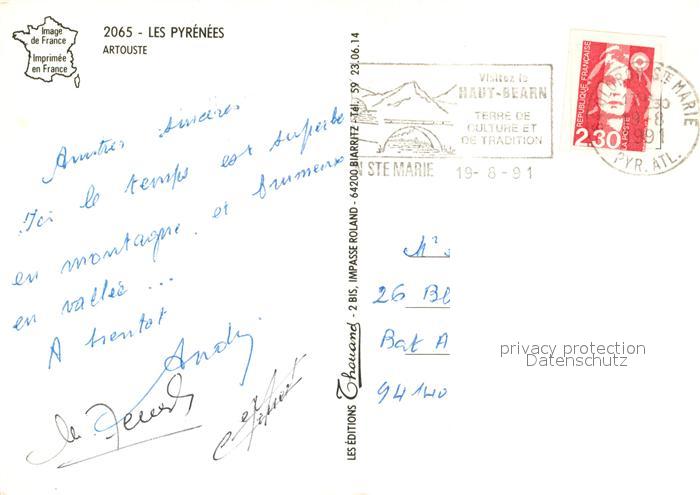 Image
de France
Imprimée
en France
2065 - LES PYRÉNÉES
ARTOUSTE
Amitiés sincères
Ici le temps est superbe
en montagne, et brumeux
en vallée ...
A bientôt
André
LES ÉDITIONS Thouand - 2 BIS, IMPASSE ROLAND - 64200 BIARRITZ - Tél. 59 23.06.14
Visitez le
HAUT-BEARN
TERRE DE
CULTURE ET
DE TRADITION
STE MARIE 19-8-91
REPUBLIQUE FRANÇAISE
2.30
LA POSTE
STE MARIE
1991
PYR. ATL.
26 Bl
Bat A
94140
privacy protection
Datenschutz